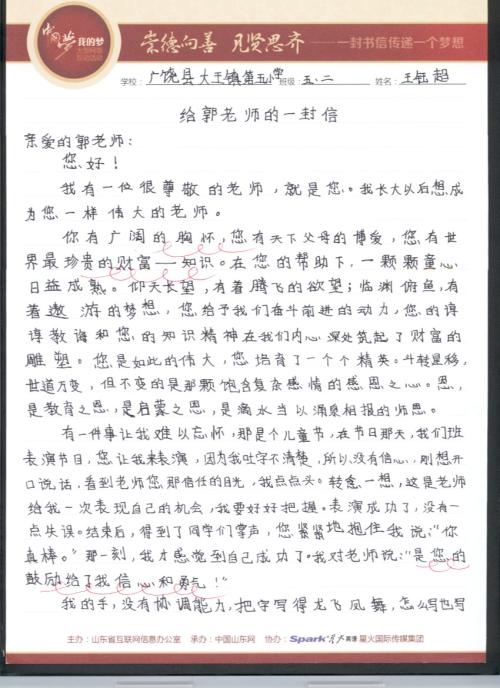 中国梦 我的梦
崇德向善 见贤思齐 一封书信传递一个梦想
学校：广饶县大王镇第五小学 班级 五、二 姓名：王钰超
给郭老师的一封信
亲爱的郭老师：
您好！
我有一位很尊敬的老师，就是您。我长大以后想成
为您一样伟大的老师。
你有广阔的胸怀，您有天下父母的博爱，您有世
界最珍贵的财富——知识。在您的帮助下，一颗颗童心
日益成熟。仰天长望，有着腾飞的欲望；临渊俯鱼，有
着遨游的梦想，您给予我们奋斗前进的动力，您的谆
谆教诲和您的知识精神在我们内心深处筑起了财富的
雕塑。您是如此的伟大，您培育了一个个精英。斗转星移，
世道万变，但不变的是那颗饱含复杂感情的感恩之心。恩，
是教育之恩，是启蒙之恩，是滴水当以涌泉相报的师恩。
有一件事让我难以忘怀，那是个儿童节，在节日那天，我们班
表演节目，您让我来表演，因为我吐字不清楚，所以没有信心，刚想开
口说话，看到老师您那信任的目光，我点点头。转念一想，这是老师
给我一次表现自己的机会，我要好好把握。表演成功了，没有一
点失误。结束后，得到了同学们掌声，您紧紧地抱住我说：“你
真棒。”那一刻，我才感觉到自己成功了。我对老师说：“是您的
鼓励给了我信心和勇气！”
我的手，没有协调能力，把字写得龙飞凤舞，怎么写也写
主办：山东省互联网信息办公室 承办：中国山东网 协办：Spark 星火英语 星火国际传媒集团